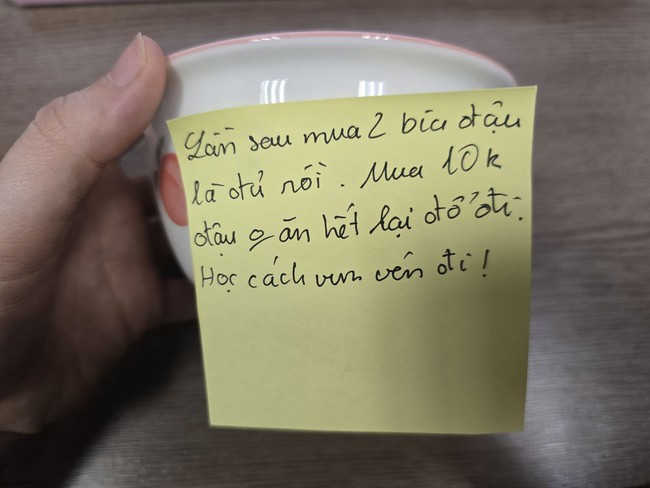 Lần sau mua 2 bìa đậu
là đủ rồi. Mua 10k
đậu o ăn hết lại đổ đi.
Học cách vun vén đi!